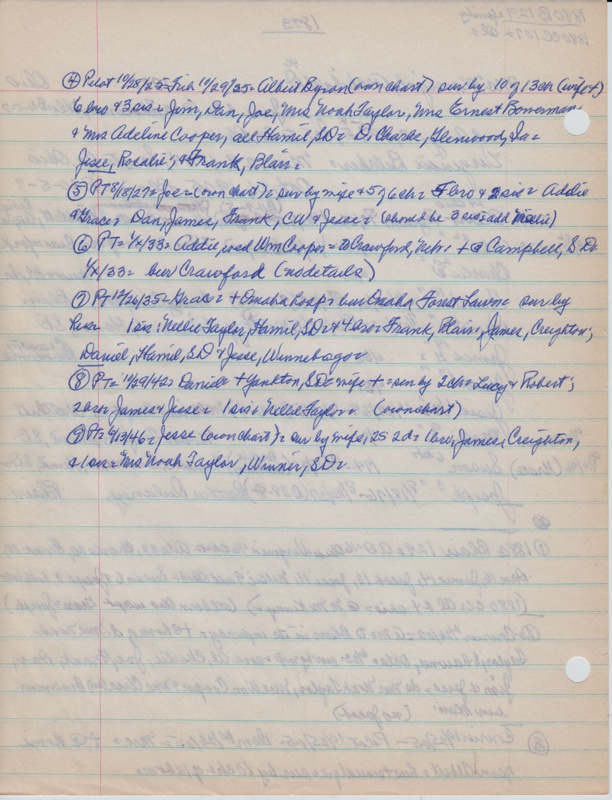 1873
④ Pilot 10/28/25= Trib 10/29/35= Albert Byron (own chart) sur by 10 of 13 ch (wife +)
6 bro & 3 sis = Jim, Dan, Joe, Mrs Noah Taylor, Mrs Ernest Bowerman,
& Mrs Adeline Cooper, all Hamil, SD= D. Charles, Glenwood, Ia=
Jesse, Rosalie; & Frank, Blair=
⑤ PT 8/18/27= Joe= (own chart)= sur by wife & 5 of 6 ch= 5 bro & 2 sis= Addie
& Grace= Dan, James, Frank, CW & Jesse= (should be 3 sis add Nellie)
⑥ PT= 1/X/33= Addie, wed Wm Cooper= to Crawford, Nebr + @ Campbell, S.D=
1/X/33= bur Crawford (no details)
⑦ PT 12/26/35= Grace= + Omaha hosp= bur Omaha Forest Lawn sur by
1 sis= Nellie Taylor, Hamil, SD= & 4 bro= Frank, Blair; James, Creighton;
Daniel, Hamil, S.D & Jesse, Winnebago=
⑧ PT= 1/29/42= Daniel= + Yankton, SD= wife + = sur by 2 ch= Lucy & Robert;
2 bro= James & Jesse= 1 sis= Nellie Taylor= (own chart)
⑨ PT= 4/3/46= Jesse (own chart)= sur by wife, 2S 2d= 1 bro, James, Creighton,
& 1 sis= Mrs Noah Taylor, Winner, S.D=